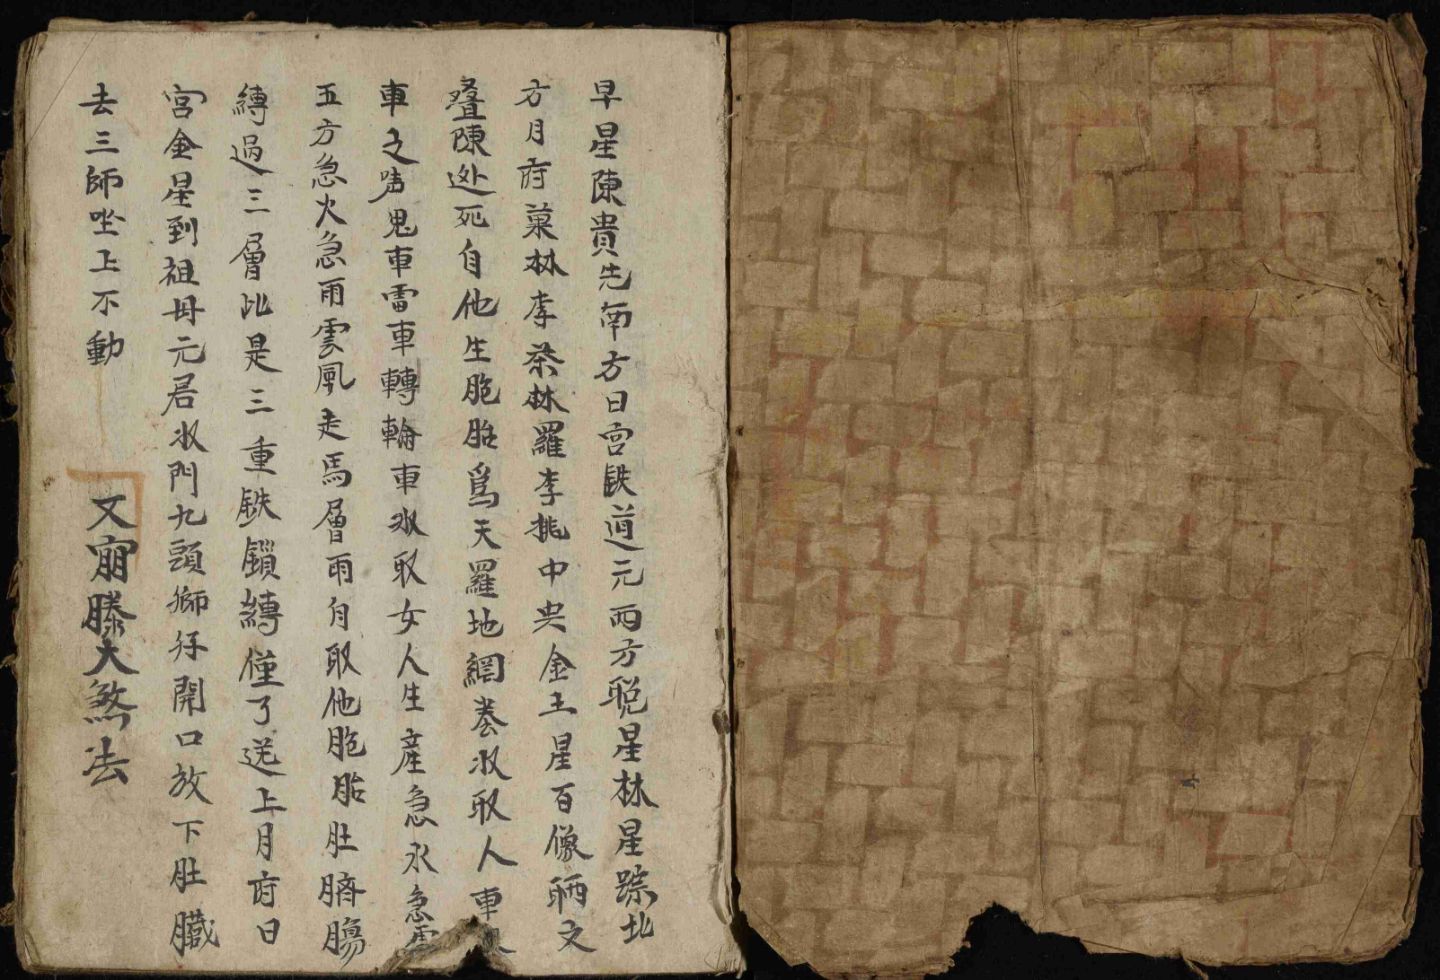 早星陳貴先南方日宮鉄道元西方晚星林星踪北
方月府菓林李茶林羅李桃中央金土星百像晒文
疊陳处死自他生胞胎爲天罗地網养収取人車
車之嗚鬼車雷車轉輪車収取女人生產急水急雷
五方急火急雨雲風走馬層雨自取他胞胎肚臍腸
縛過三層比是三重鉄鎖縛僅了送上月府日
宮金星到祖母元居収門九頭獅仔開口放下肚臟
去三師坐上不動
又崩滕大煞法